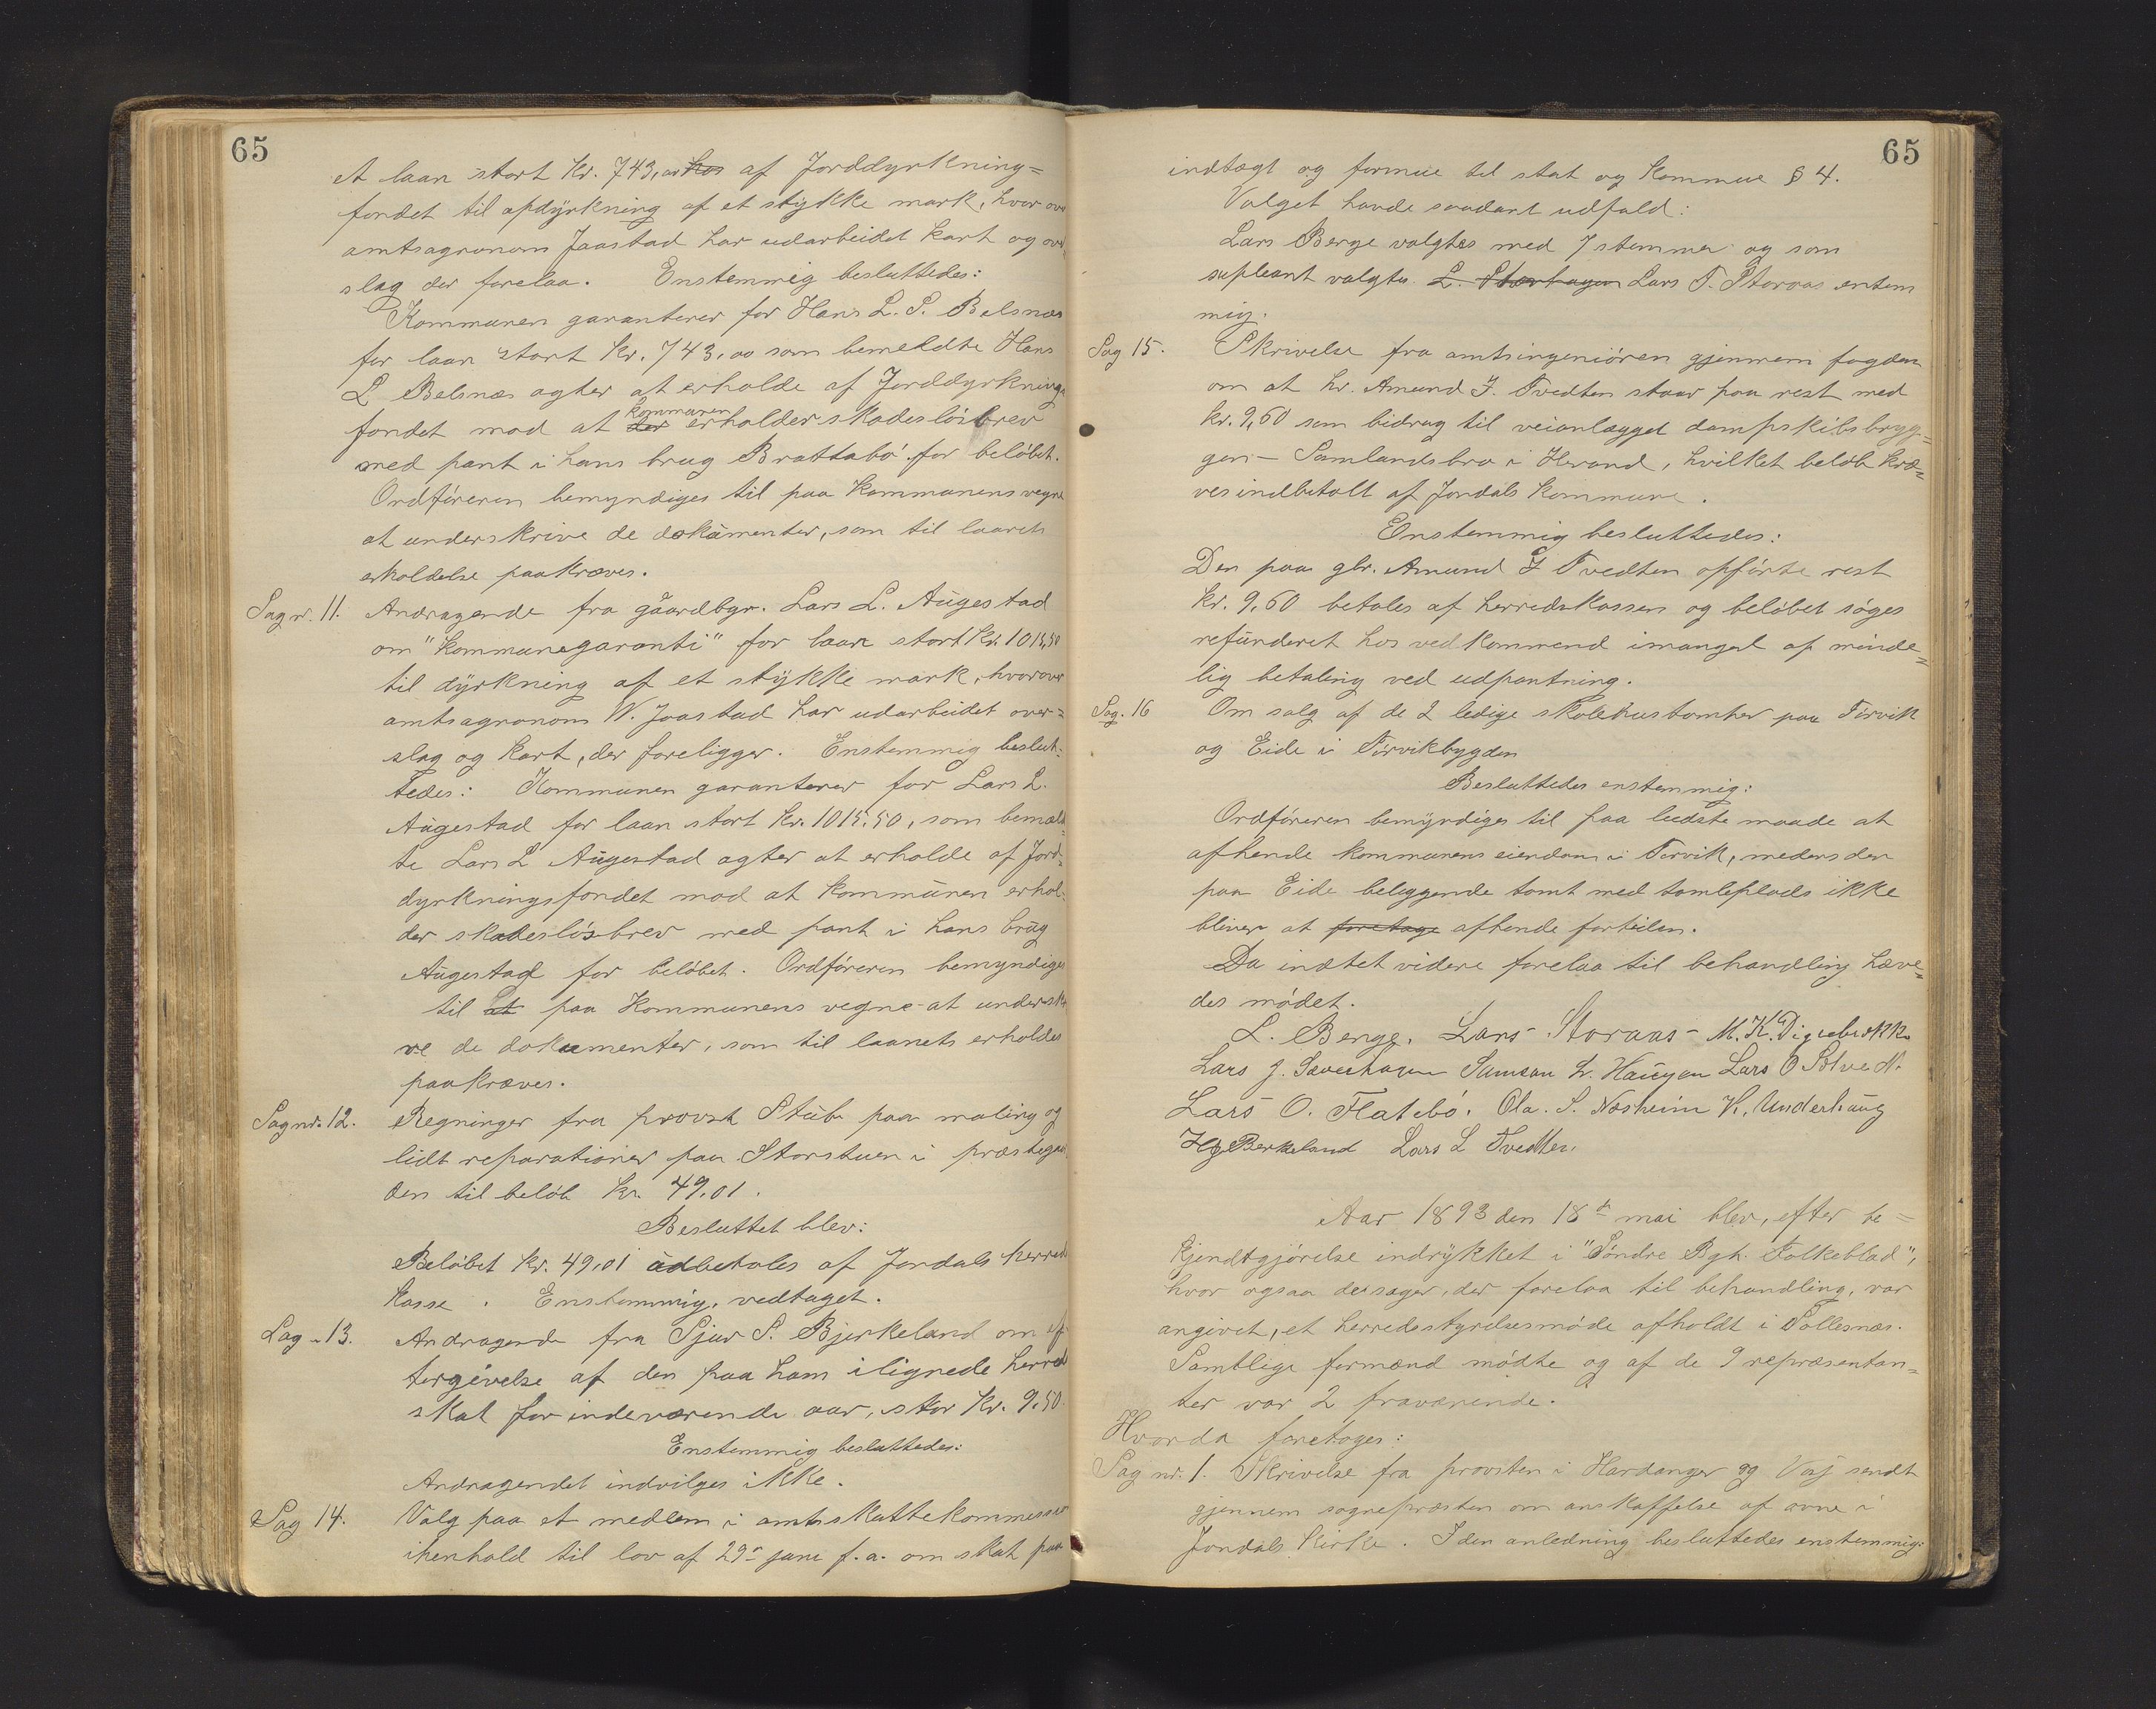 65
et laan stort Kr. 743,00 hos af Jorddyrkning=
fondet til opdyrkning af et stykke mark, hvor ove
amtsagronom Jaastad har udarbeidet kart og over
slag der forelaa. Enstemmig besluttedes:
Kommunen garanterer for Hans L. S. Belsnæs
for laan stort Kr. 743,00 som bemeldte Hans
L Belsnæs agter at erholde af Jorddyrknings
kommunen
fondet mod at der erholder skadesløsbrev
med pant i hans brug Brattabø for beløbet.
Ordføreren bemyndiges til paa Kommunens vegne
at underskrive de dokumenter, som til laanets
erholdelse paakræves.
Sag nr. 11. Andragende fra gaardbgr. Lars L. Augestad
om "Kommunegaranti" for laan stort Kr. 1015,50
til dyrkning af et stykke mark, hvorover
amtsagronom W. Jaastad har udarbeidet over=
slag og kart, der foreligger. Enstemmig beslut=
tedes: Kommunen garanterer for Lars L.
Augestad for laan stort Kr. 1015,50, som bemeld=
te Lars L Augestad agter at erholde af Jord=
dyrkningsfondet mod at Kommunen erhol=
der skadesløsbrev med pant i hans brug
Augestad for beløbet. Ordføreren bemyndiges
til at paa Kommunens vegne at underskri
ve de dokumenter, som til laanets erholdes
paakræves.
Sag nr. 12. Regninger fra provst Stub paa maling og
lidt reparationer paa Storstuen i præstegaar
den til beløb Kr. 49,01.
Besluttet blev:
Beløbet Kr. 49,01 udbetales af Jondals herreds
kasse. Enstemmig vedtaget.
Sag - 13. Andragende fra Sjur S. Bjerkeland om ef
tergivelse af den paa ham ilignede herred
skat for indeværende aar, stor Kr. 9,50.
Enstemmig besluttedes:
Andragendet indvilges ikke.
Sag 14. Valg paa et medlem i amtsskattekommission
ihenhold til lov af 29de juni f. a. om skat paa
65
indtægt og formue til stat og kommue § 4.
Valget havde saadant udfald:
Lars Berge valgtes med 7 stemmer og som
supleant valgtes L. Sæverhagen Lars T. Storaas enstem
mig.
Sag 15. Skrivelse fra amtsingeniøren gjennem fogden
om at hr. Amund J. Tvedten staar paa rest med
kr. 9,60 som bidrag til veianlægget dampskibsbryg=
gen - Samlandsbro i Herand, hvilket beløb kræ=
ves indbetalt af Jondals kommune.
Enstemmig besluttedes:
Den paa gbr. Amund J Tvedten opførte rest
Kr. 9,60 betales af herredskassen og beløbet søges
refunderet hos vedkommend imangel af minde=
lig betaling ved udpantning.
Sag. 16 Om salg af de 2 ledige skolehustomter paa Tørvik
og Eide i Tørvikbygden
Besluttedes enstemmig:
Ordføreren bemyndiges til paa bedste maade at
afhende kommunens eiendom i Tørvik, medens den
paa Eide beliggende tomt med tomteplads ikke
bliver at foretage afhende fortiden.
Da indtet videre forelaa til behandling hæve=
des mødet.
L. Berge. Lars Storaas - M. K. Digrebrekke
Lars J. Sæverhagen Samson L. Haugen Lars O Solvedt.
Lars O. Flatebø. Ola. S. Næsheim K. Underhaug
Hg Berkeland Lars L Tvedten.
Aar 1893 den 18de mai blev, efter be=
kjendtgjørelse indrykket i "Søndre Bgh. Folkeblad",
hvor ogsaa de sager, der forelaa til behandling, var
angivet, et herredsstyrelsesmøde afholdt i Tollesnæs.
Samtlige formænd mødte og af de 9 repræsentan=
ter var 2 fraværende.
Hvorda foretages:
Sag nr. 1. Skrivelse fra provsten i Hardanger og Vosj sendt
gjennem sognepræsten om anskaffelse af ovne i
Jondals kirke. I den anledning besluttedes enstemmig: